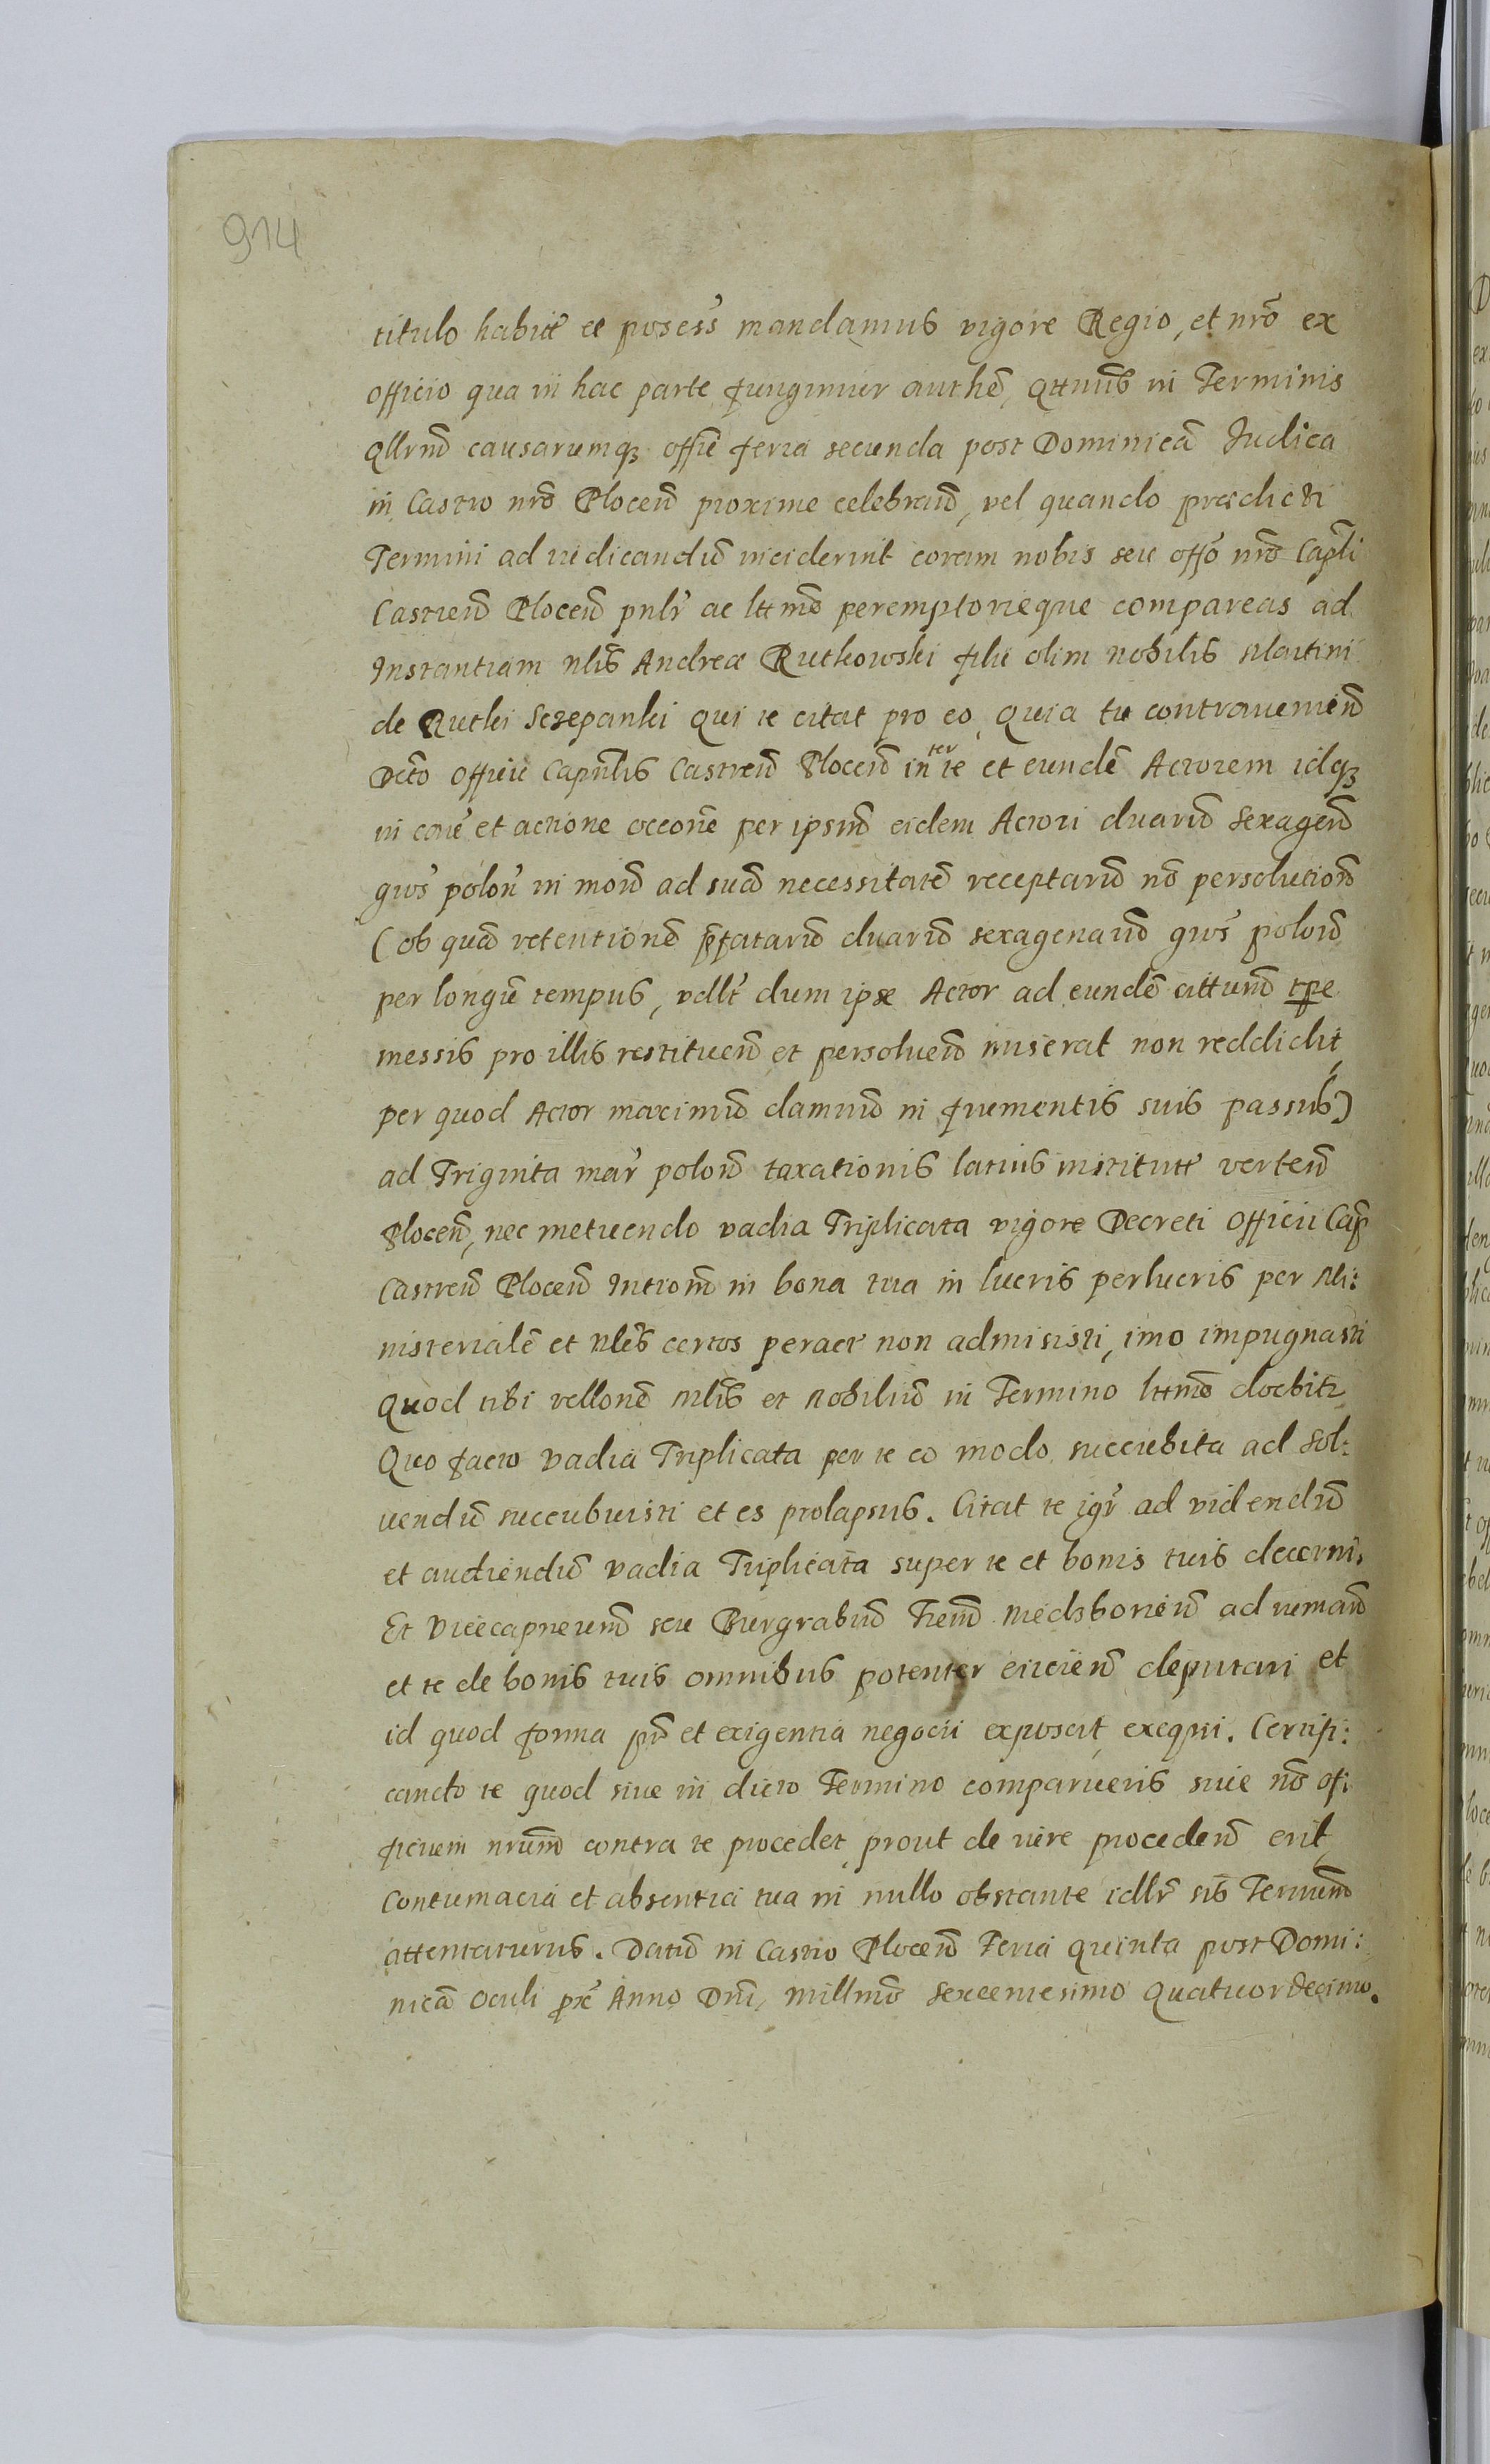 914
titulo habit̃ et posess̃ mandamus vigore Regio, et nr̃o ex
officio qua in hac parte fungimur authẽ, qttnus̃ in Terminis
qllrũ causarumq₃ offiĩ feria secunda post Dominicã Iudica
in Castro nr̃o Ploceñ proxime celebrañ, vel quando prædicti
Termini ad iudicandũ inciderint coram nobis seu offõ nr̃o Cap̃li
Castreñ Ploceñ pnlr̃ ac lttmẽ peremptorieque compareas ad
Instantiam nlis̃ Andreæ Rutkowski filii olim nobilis Martini
de Rutki Sczepanki qui te citat pro eo, quia tu contraveniẽn
Dct̃o officii Capnl̃is Castreñ Ploceñ inter te et eundẽ Actorem idq₃
in caue᷉ et actione occone᷉ per ipsũ eidem Actori duarũ sexageñ
gros̃ poloñ in moñ ad suã necessitatẽ receptarũ nõ persolucioñ
(ob quã retentionẽ pf̃atarũ duarũ sexagenarũ gros̃ poloñ
per longũ tempus, vdlt̃ dum ipse Actor ad eundẽ cittum̃ tp̃e
messis pro illis restitueñ et persolueñ miserat non reddidit,
per quod Actor maximũ damnũ in frumentis suis passus)
ad Triginta mar̃ poloñ taxationis latius institutt̃ verteñ
Ploceñ, nec metuendo vadia Triplicata vigore Decreti officii Cap̃
Castreñ Ploceñ Introm̃ in bona tua in lucris perlucris per Mi:
nisterialẽ et nles̃ certos peract̃ non admisisti, imo impugnasti
Quod tibi rellonẽ Mlis̃ et Nobiliũ in Termino lttmẽ docbit₂
Quo facto vadia Triplicata per te eo modo succubita ad Sol:
uendũ succubuisti et es prolapsus. Citat te igr̃ ad videndũ
et audiendũ vadia Triplicata super te et bonis tuis decerni,
Et Vicecapneum̃ seu Burgrabiũ Tr̃eñ Niedsborieñ ad iuñañ
et te de bonis tuis omnibus potenter eiicieñ deputari et
id quod forma pr̃ et exigentia negocii exposcit exequi. Certifi:
cando te quod siue in dicto Termino comparueris siue nõ of:
ficium nrum̃ contra te procedet prout de iure procedeñ erit
Contumacia et absentia tua in nullo obstante idllr̃ sib̃ Terminũ
attentaturus. Datũ in Castro Ploceñ Feria quinta post Domi:
nicã Oculi pr̃x Anno Dni᷉, millmõ Sexcentesimo Quatuordecimo.